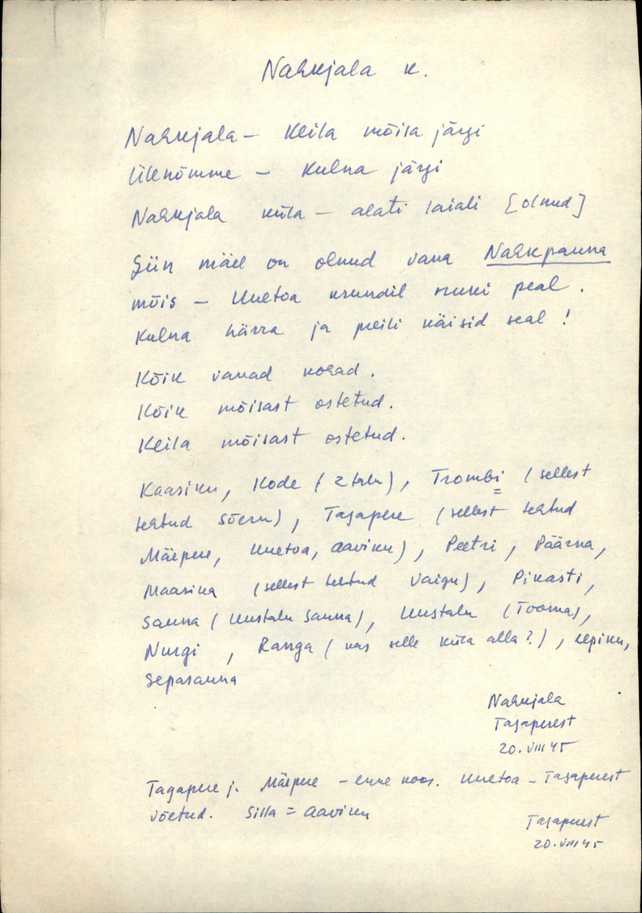 Nahkjala k.
Nahkjala – Keila mõisa järgi
Ülenõmme – Kulna järgi
Nahkjala küla – alati laiali [olnud]
Siin mäel on olnud vana Nahkpanna
mõis – Uuetoa krundil muru peal.
Kulna härra ja preili käisid seal!
Kõik vanad kohad.
Kõik mõisast ostetud.
Keila mõisast ostetud.
Kaasiku, Kode (2 talu), Trombi (sellest
tehtud Sõeru), Tagapere (sellest tehtud
Mäepere, Uuetoa, Aaviku), Peetri, Päärna,
Maasika (sellest tehtud Vaigu), Pikasti,
Sauna (Uustalu Sauna), Uustalu (Tooma),
Nurgi, Ranga (kas selle küla alla?), Lepiku,
Sepasauna
Nahkjala
Tagaperest
20.VIII 45
Tagapere j. Mäepere – enne koos. Uuetoa – Tagaperest
võetud. Silla = Aaviku
Tagaperest
20.VIII 45